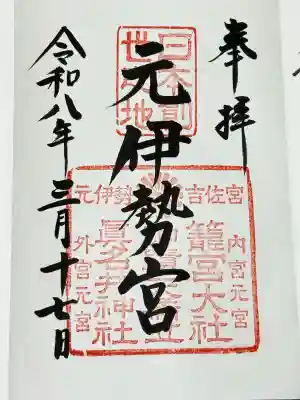 奉拝
元伊勢宮
令和八年三月十七日
元伊勢 吉佐宮
内宮元宮
籠宮大社
眞名井神社
外宮元宮